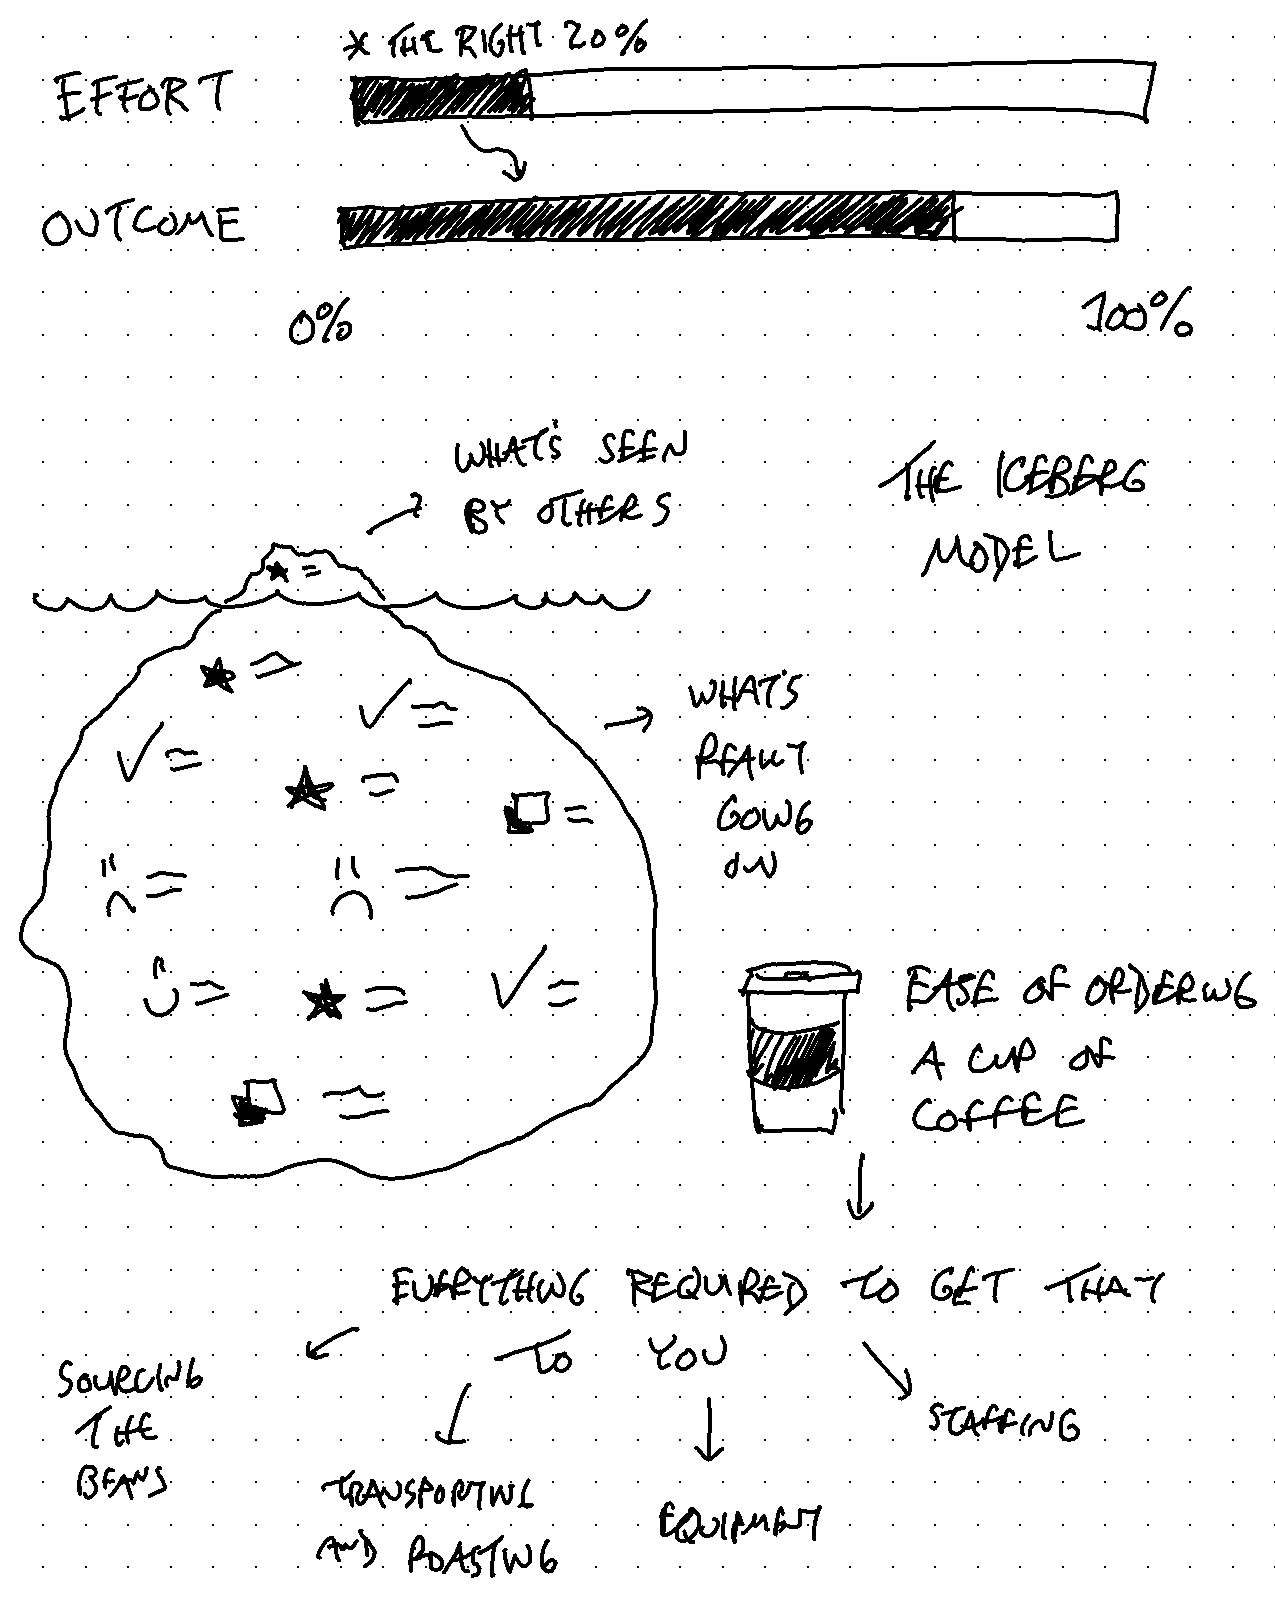 * THE RIGHT 20%
EFFORT
OUTCOME
0%
100%
WHAT'S SEEN
BY OTHERS
THE ICEBERG
MODEL
WHAT'S
REALLY
GOING
ON
EASE OF ORDERING
A CUP OF
COFFEE
EVERYTHING REQUIRED TO GET THAT
TO YOU
SOURCING
THE
BEANS
TRANSPORTING
AND ROASTING
EQUIPMENT
STAFFING